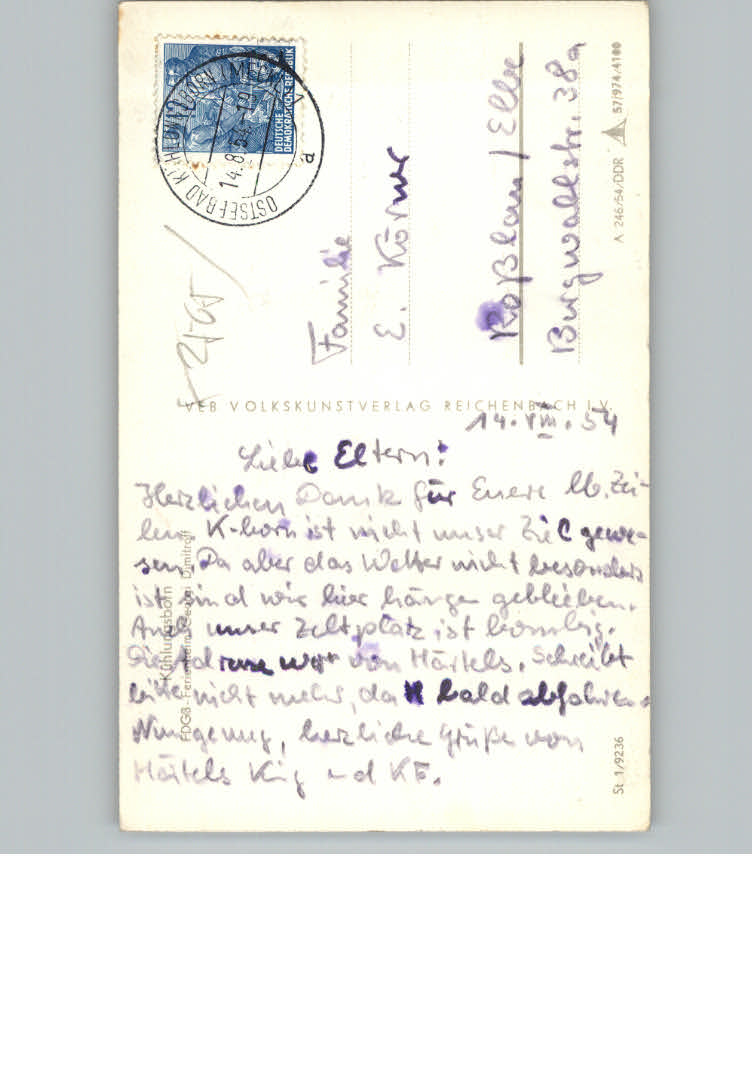 DEUTSCHE
DEMOKRATISCHE REPUBLIK
OSTSEEBAD KÜHLUNGSBORN
14.8.54
a
Familie
E. Körner
Roßlau / Elbe
Burgwallstr. 38a
A 246/54/DDR 57/974/4100
VEB VOLKSKUNSTVERLAG REICHENBACH I.V.
14. VIII. 54
Liebe Eltern!
Herzlichen Dank für Euere lb. Zei-
len. K-born ist nicht unser Ziel gewe-
sen. Da aber das Wetter nicht besonders
ist sind wir hier hängen geblieben.
Auch unser Zeltplatz ist bombig.
Die Adresse war von Härtels. Schreibt
bitte nicht mehr, da bald abfahren.
Nun genug, herzliche Grüße von
Härtels und
Kühlungsborn
FDGB-Ferienheim Georgi Dimitroff
St 1/9236